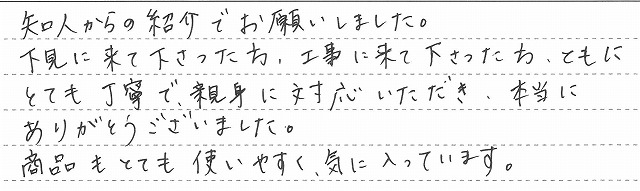 知人からの紹介でお願いしました。
下見に来て下さった方、工事に来て下さった方、ともに
とても丁寧で、親身に対応いただき、本当に
ありがとうございました。
商品もとても使いやすく、気に入っています。